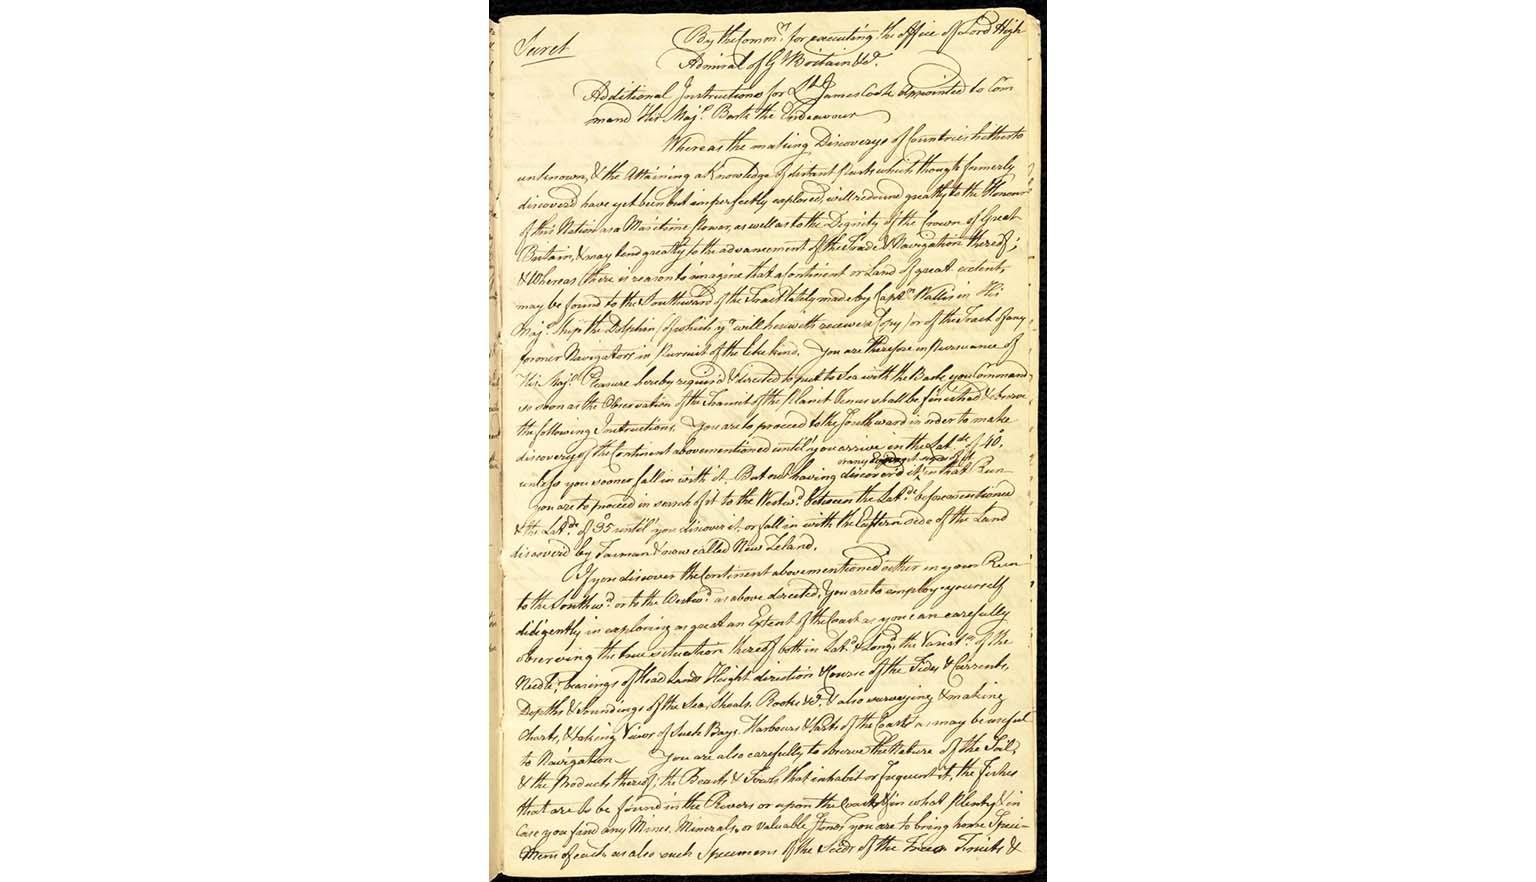 Secret
By the Comm.rs for executing the office of Lord High
Admiral of G.t Britain &c.a
Additional Instructions for L.t James Cook appointed to Com
mand His Maj.s Bark the Endeavour
Whereas the making Discoverys of Countries hitherto
unknown, & the Attaining a Knowledge of distant Parts which though formerly
discover'd have yet been but imperfectly explored, will redound greatly to the Honour
of this Nation as a Maritime Power, as well as to the Dignity of the Crown of Great
Britain, & may tend greatly to the advancement of the Trade & Navigation thereof;
& Whereas there is reason to imagine that a Continent or Land of great extent,
may be found to the Southward of the Tract lately made by Capt.n Wallis in His
Maj.s Ship the Dolphin (of which y.u will herewith receive a Copy) or of the Tract of any
former Navigators in Pursuit of the like kind, You are therefore in Pursuance of
His Maj.s Pleasure hereby requir'd & directed to put to Sea with the Bark you Command
so soon as the Observation of the Transit of the Planet Venus shall be finished & observe
the following Instructions. You are to proceed to the Southward in order to make
discovery of the Continent abovementioned until' you arrive in the Lat.de of 40°,
unless you sooner fall in with it. But not having discover'd it or any Evident signs of it in that Run
you are to proceed in search of it to the Westw.d between the Lat.de beforementioned
& the Lat.de of 35° until' you discover it, or fall in with the Eastern side of the Land
discover'd by Tasman & now called New Zeland.
If you discover the Continent abovementioned either in your Run
to the Southw.d or to the Westw.d as above directed, You are to employ yourself
diligently in exploring as great an Extent of the Coast as you can carefully
observing the true situation thereof both in Lat.de & Long.de the Variat.n of the
Needle; bearings of Head Lands Height direction & Course of the Tides & Currents,
Depths & Soundings of the Sea, Shoals, Rocks &c.a & also surveying & making
Charts, & taking Views of such Bays, Harbours & Parts of the Coast as may be useful
to Navigation. You are also carefully to observe the Nature of the Soil,
& the Products thereof; the Beasts & Fowls that inhabit or frequent it, the Fishes
that are to be found in the Rivers or upon the Coast & in what Plenty & in
Case you find any Mines, Minerals, or valuable Stones you are to bring home Speci-
mens of each, as also such Specimens of the Seeds of the Trees Fruits &